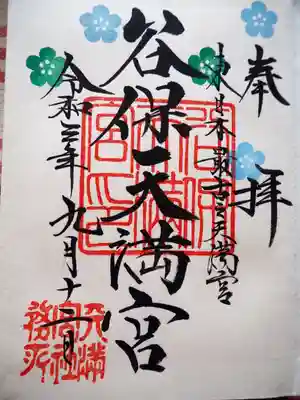 奉拝
東日本最古之天満宮
谷保天満宮
令和三年九月十二日
天満
宮社
務所